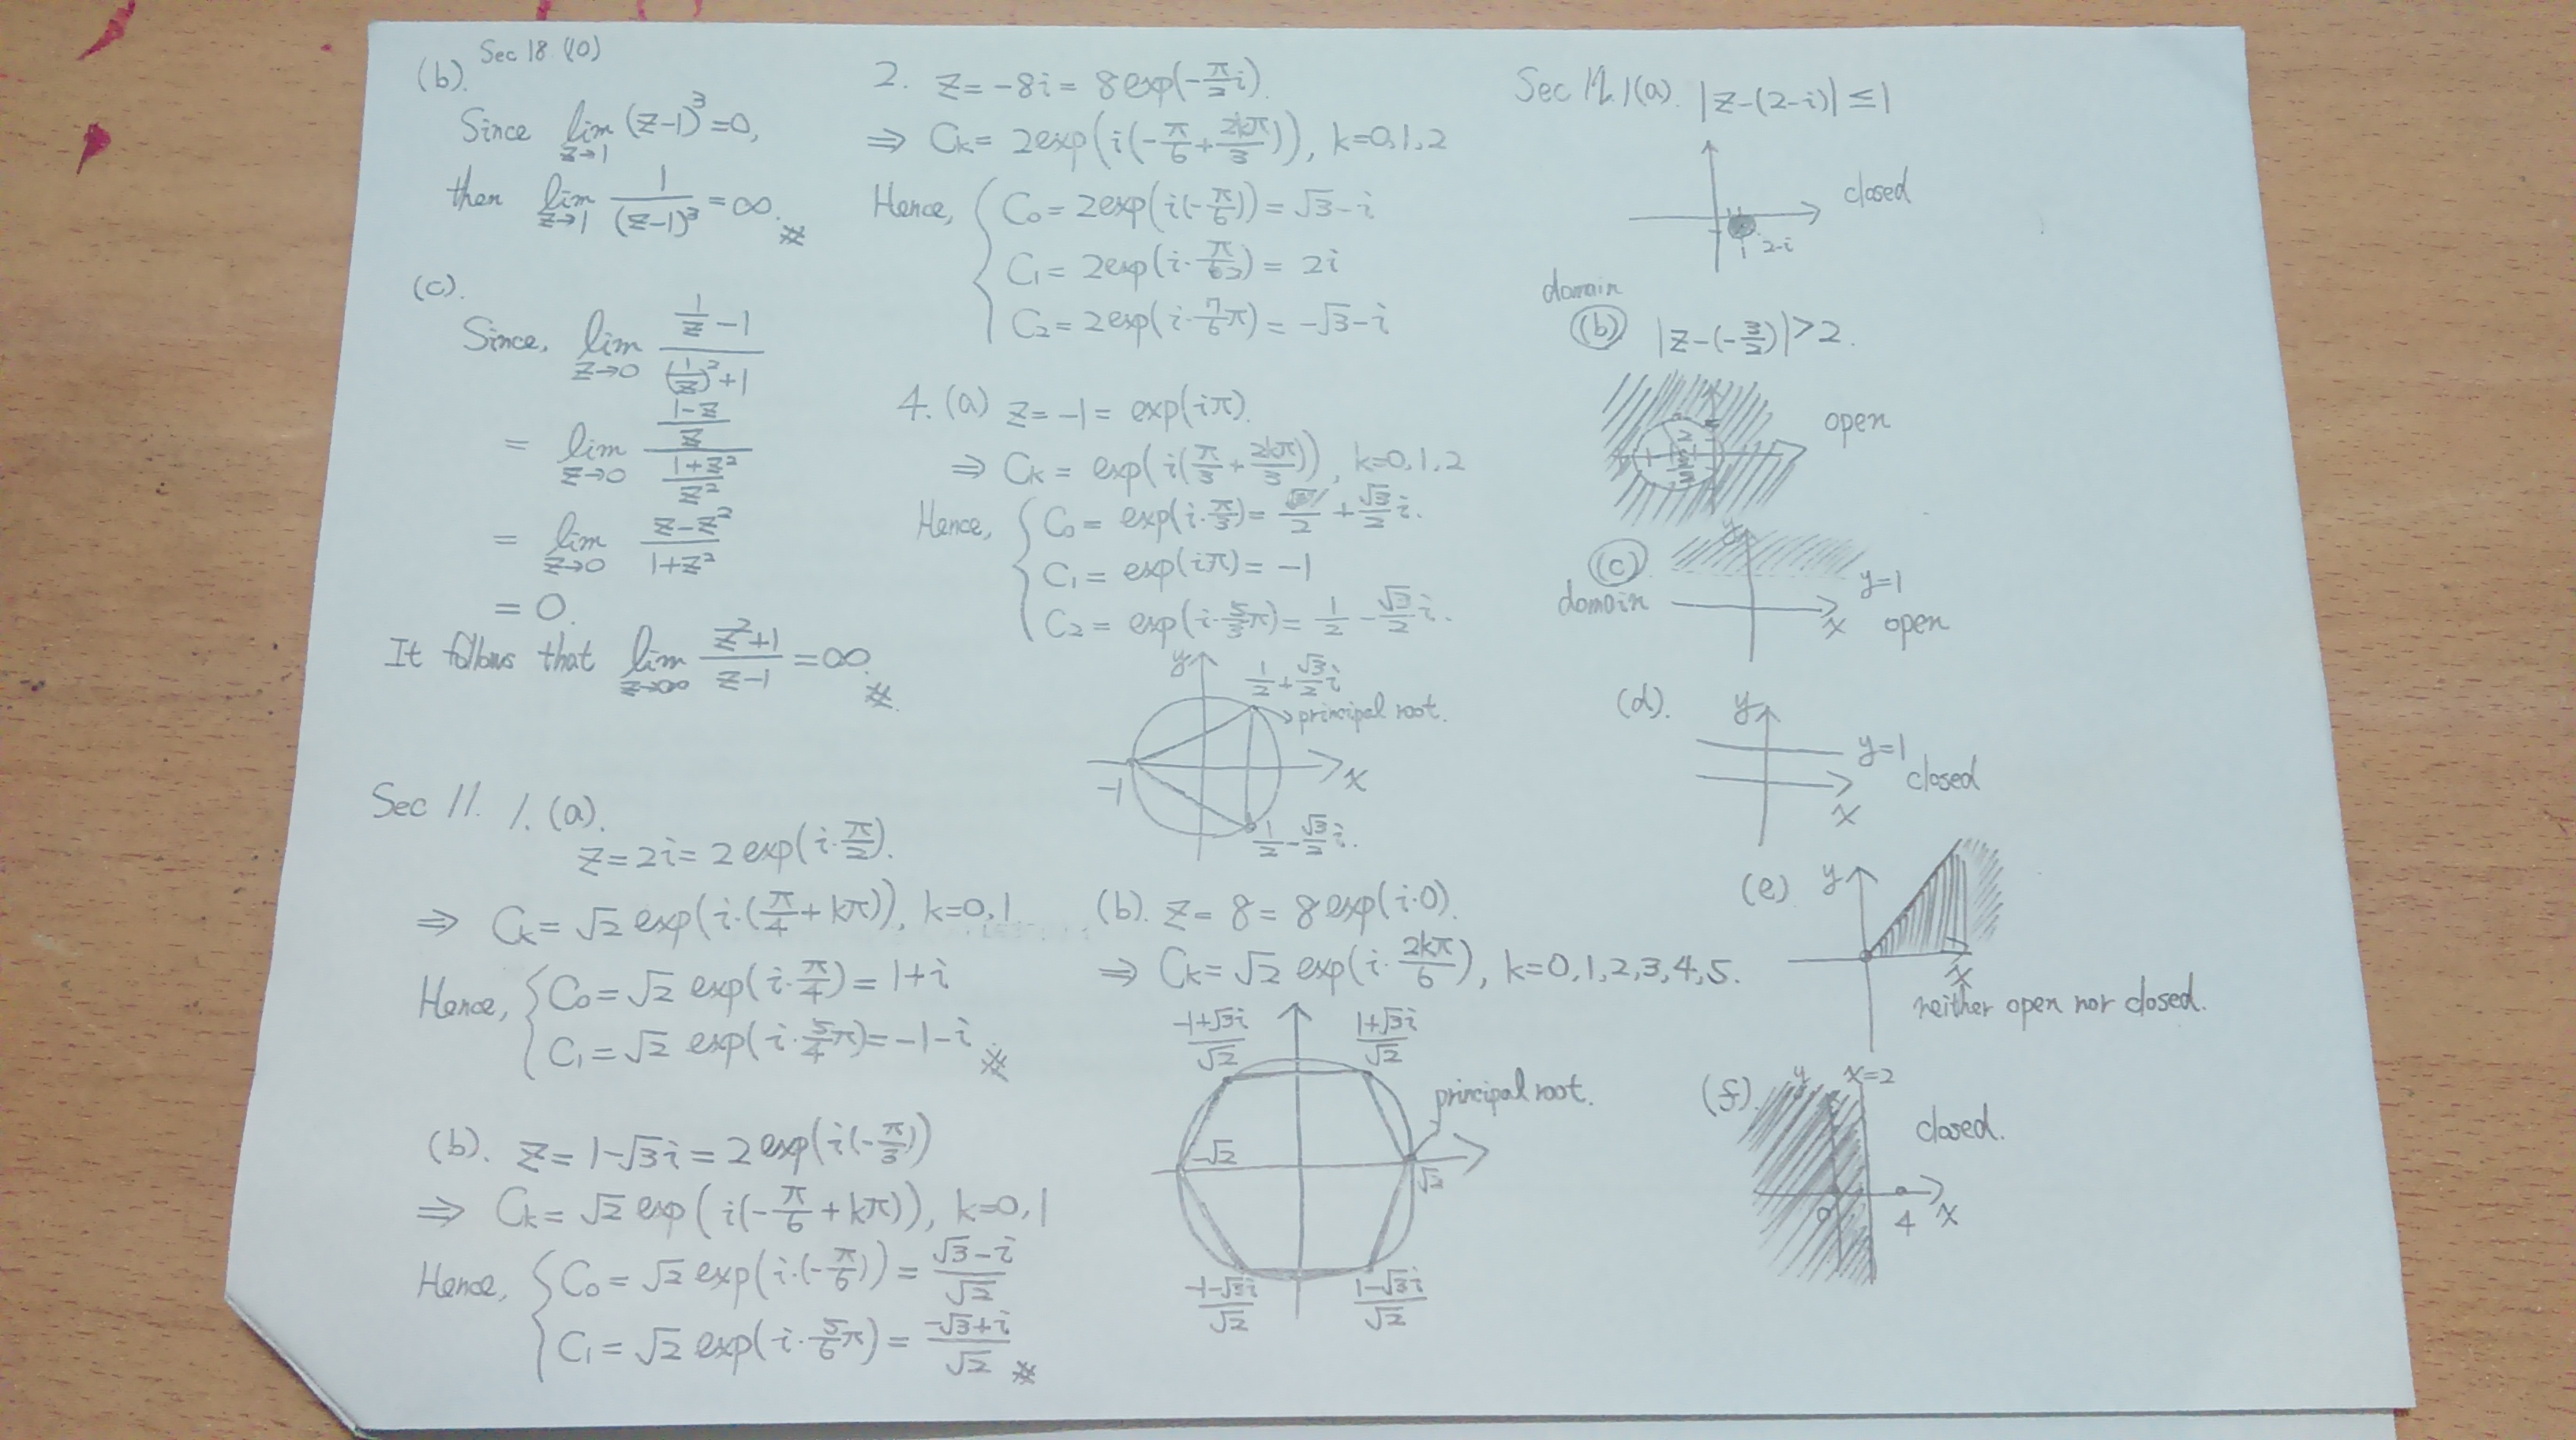 Sec 18. (10)
(b).
Since lim_{z→1} (z-1)^3 = 0,
then lim_{z→1} 1/(z-1)^3 = ∞.
(c).
Since, lim_{z→0} (1/z - 1)/((1/z)^2 + 1)
= lim_{z→0} ((1-z)/z)/((1+z^2)/z^2)
= lim_{z→0} (z-z^2)/(1+z^2)
= 0.
It follows that lim_{z→∞} (z^2+1)/(z-1) = ∞.
Sec 11. 1. (a).
z = 2i = 2 exp(i·π/2).
⇒ C_k = √2 exp(i·(π/4 + kπ)), k=0,1
Hence, { C_0 = √2 exp(i·π/4) = 1+i
C_1 = √2 exp(i·5/4π) = -1-i
(b). z = 1-√3i = 2 exp(i(-π/3))
⇒ C_k = √2 exp(i(-π/6 + kπ)), k=0,1
Hence, { C_0 = √2 exp(i·(-π/6)) = (√3-i)/√2
C_1 = √2 exp(i·5/6π) = (-√3+i)/√2
2. z = -8i = 8 exp(-π/2 i).
⇒ C_k = 2exp(i(-π/6 + 2kπ/3)), k=0,1,2
Hence, { C_0 = 2exp(i(-π/6)) = √3-i
C_1 = 2exp(i·π/2) = 2i
C_2 = 2exp(i·7/6π) = -√3-i
4. (a) z = -1 = exp(iπ).
⇒ C_k = exp(i(π/3 + 2kπ/3)), k=0,1,2
Hence, { C_0 = exp(i·π/3) = /2 + √3/2 i.
C_1 = exp(iπ) = -1
C_2 = exp(i·5/3π) = 1/2 - √3/2 i.
y
1/2 + √3/2 i
principal root.
-1
x
1/2 - √3/2 i.
(b). z = 8 = 8 exp(i·0).
⇒ C_k = √2 exp(i·2kπ/6), k=0,1,2,3,4,5.
(-1+√3i)/√2
(1+√3i)/√2
principal root.
-√2
√2
(-1-√3i)/√2
(1-√3i)/√2
Sec 12. 1(a). |z-(2-i)| ≤ 1
closed
1
2-i
domain
(b) |z-(-3/2)| > 2.
2
open
y
(c)
y=1
domain
x
open
(d).
y
y=1
closed
x
(e)
y
x
neither open nor closed.
(f).
y
x=2
closed.
0
4
x